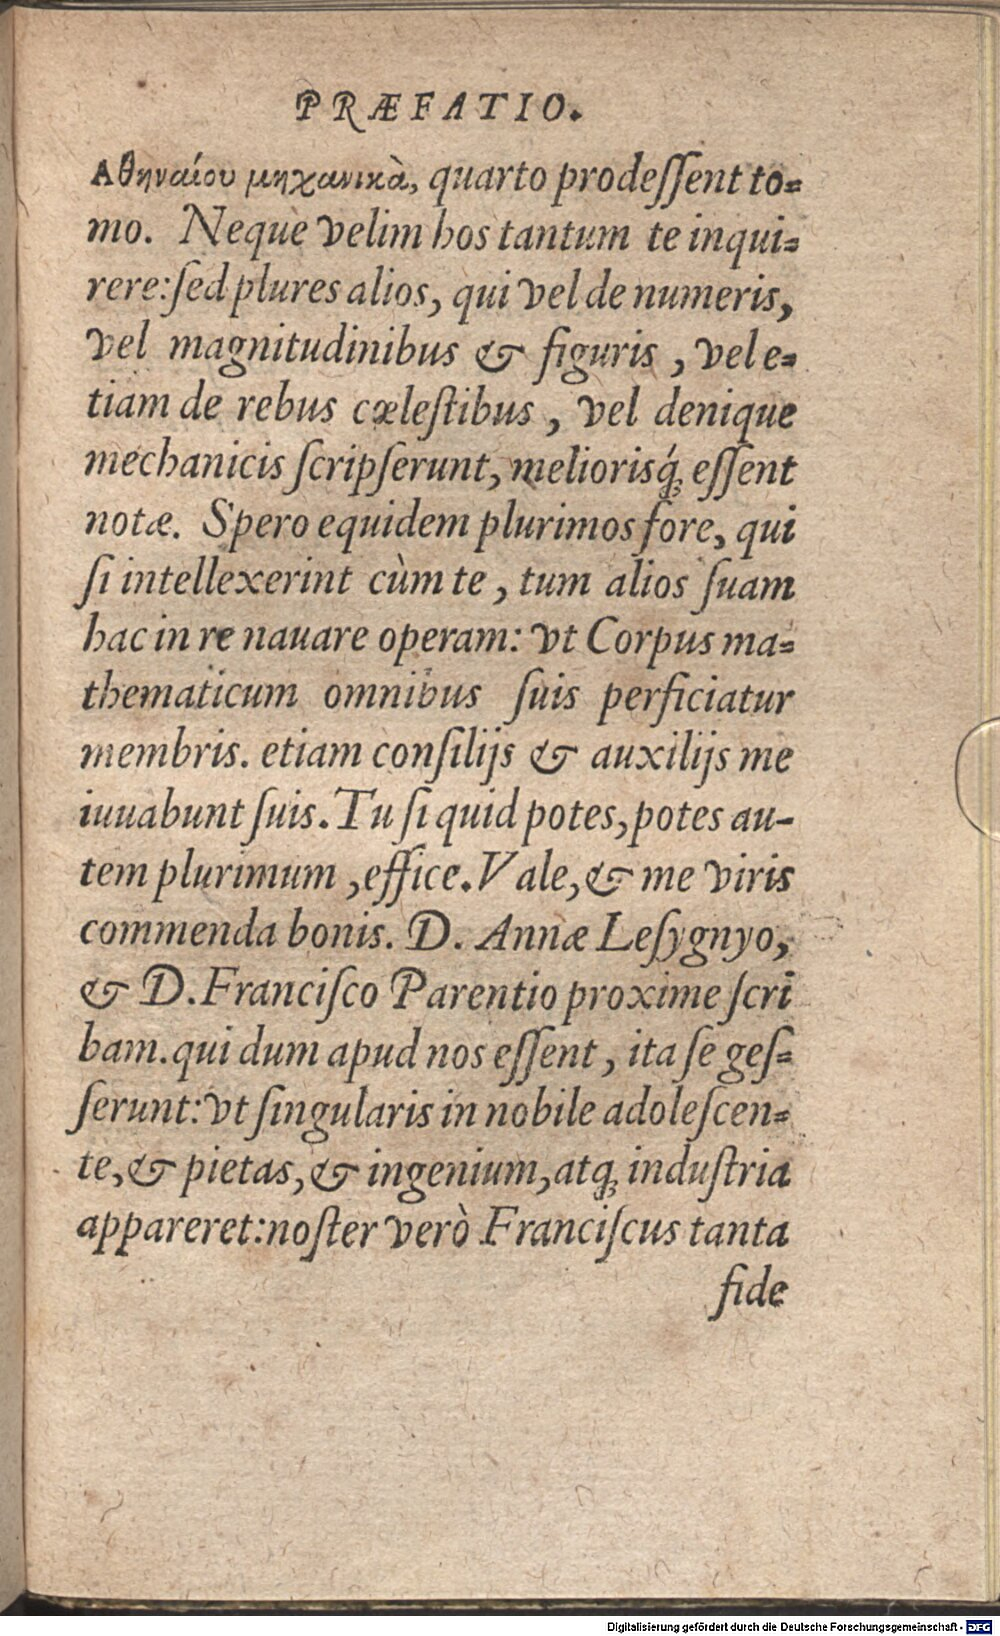 PRÆFATIO.
Αθηναίου μηχανικὰ, quarto prodeſſent to-
mo. Neque velim hos tantum te inqui-
rere: ſed plures alios, qui vel de numeris,
vel magnitudinibus & figuris, vel e-
tiam de rebus cœleſtibus, vel denique
mechanicis ſcripſerunt, meliorisq́; eſſent
notæ. Spero equidem plurimos fore, qui
ſi intellexerint cùm te, tum alios ſuam
hac in re nauare operam: vt Corpus ma-
thematicum omnibus ſuis perficiatur
membris. etiam conſilijs & auxilijs me
iuuabunt ſuis. Tu ſi quid potes, potes au-
tem plurimum, effice. Vale, & me viris
commenda bonis. D. Annæ Leſygnyo,
& D. Franciſco Parentio proxime ſcri
bam. qui dum apud nos eſſent, ita ſe geſ-
ſerunt: vt ſingularis in nobile adoleſcen-
te, & pietas, & ingenium, atq; induſtria
appareret: noſter verò Franciſcus tanta
fide
Digitalisierung gefördert durch die Deutsche Forschungsgemeinschaft - DFG